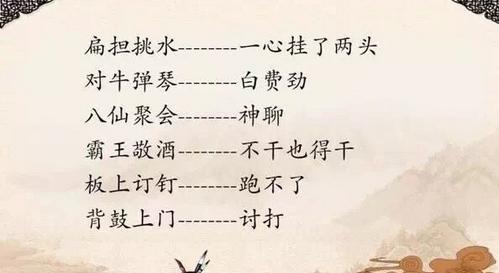 扁担挑水--------一心挂了两头
对牛弹琴--------白费劲
八仙聚会--------神聊
霸王敬酒--------不干也得干
板上订钉--------跑不了
背鼓上门--------讨打